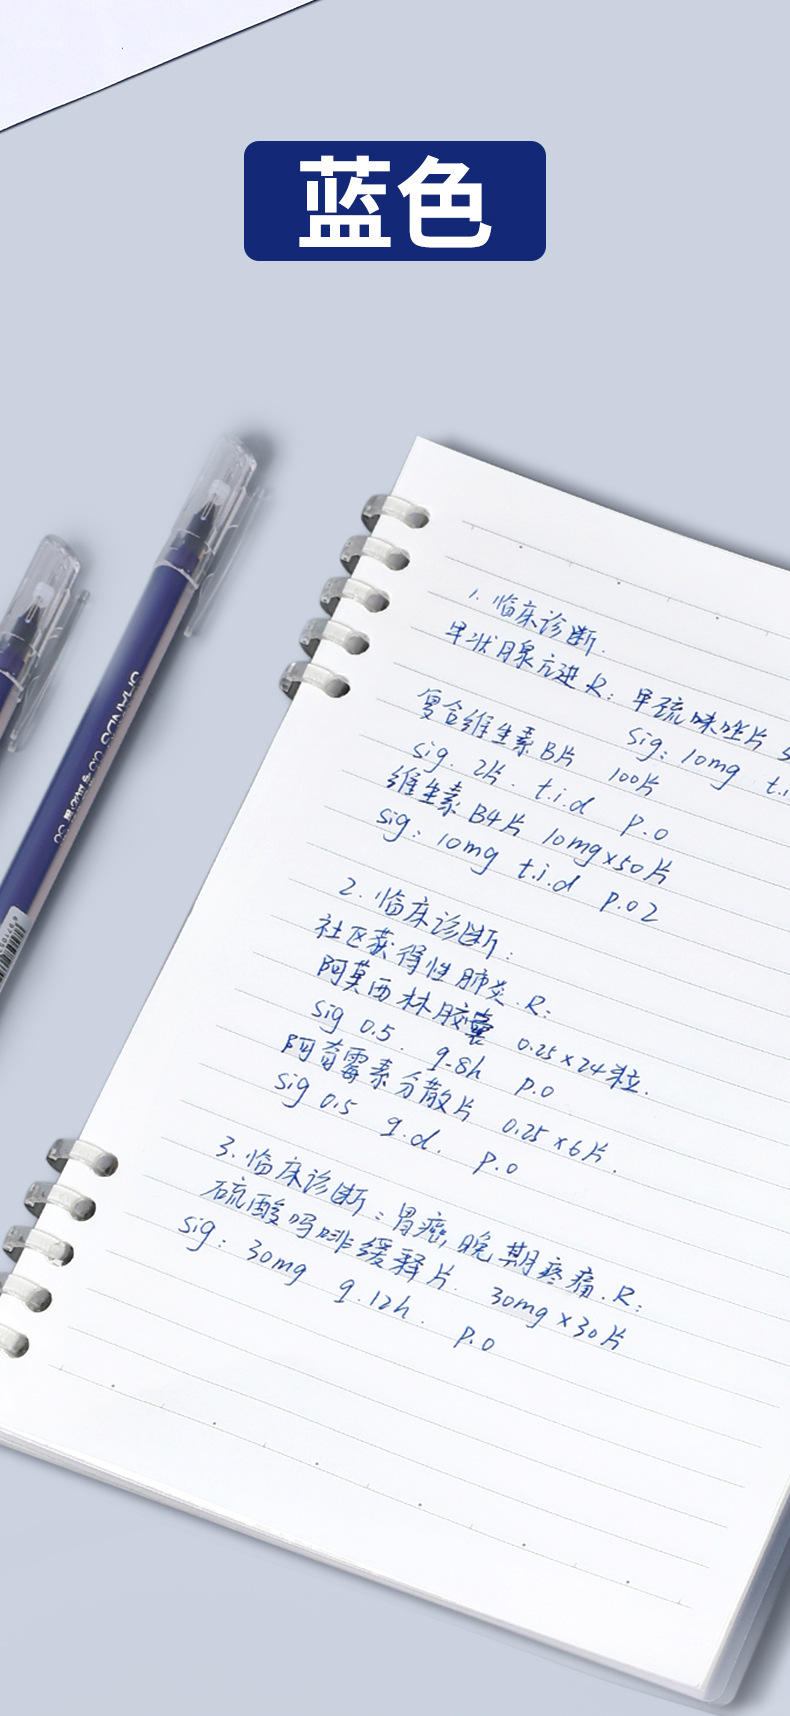 蓝色
1. 临床诊断.
甲状腺亢进 R: 甲巯咪唑片 5
sig: 10mg t.i
复合维生素B片 100片
sig. 2片. t.i.d p.o
维生素B4片 10mg×50片
sig: 10mg t.i.d p.o 2
2. 临床诊断:
社区获得性肺炎. R:
阿莫西林胶囊 0.25×24粒.
sig 0.5. q.8h p.o
阿奇霉素分散片 0.25×6片.
sig 0.5 q.d. p.o
3. 临床诊断: 胃癌, 晚期疼痛. R:
硫酸吗啡缓释片. 30mg×30片
sig: 30mg q.12h. p.o